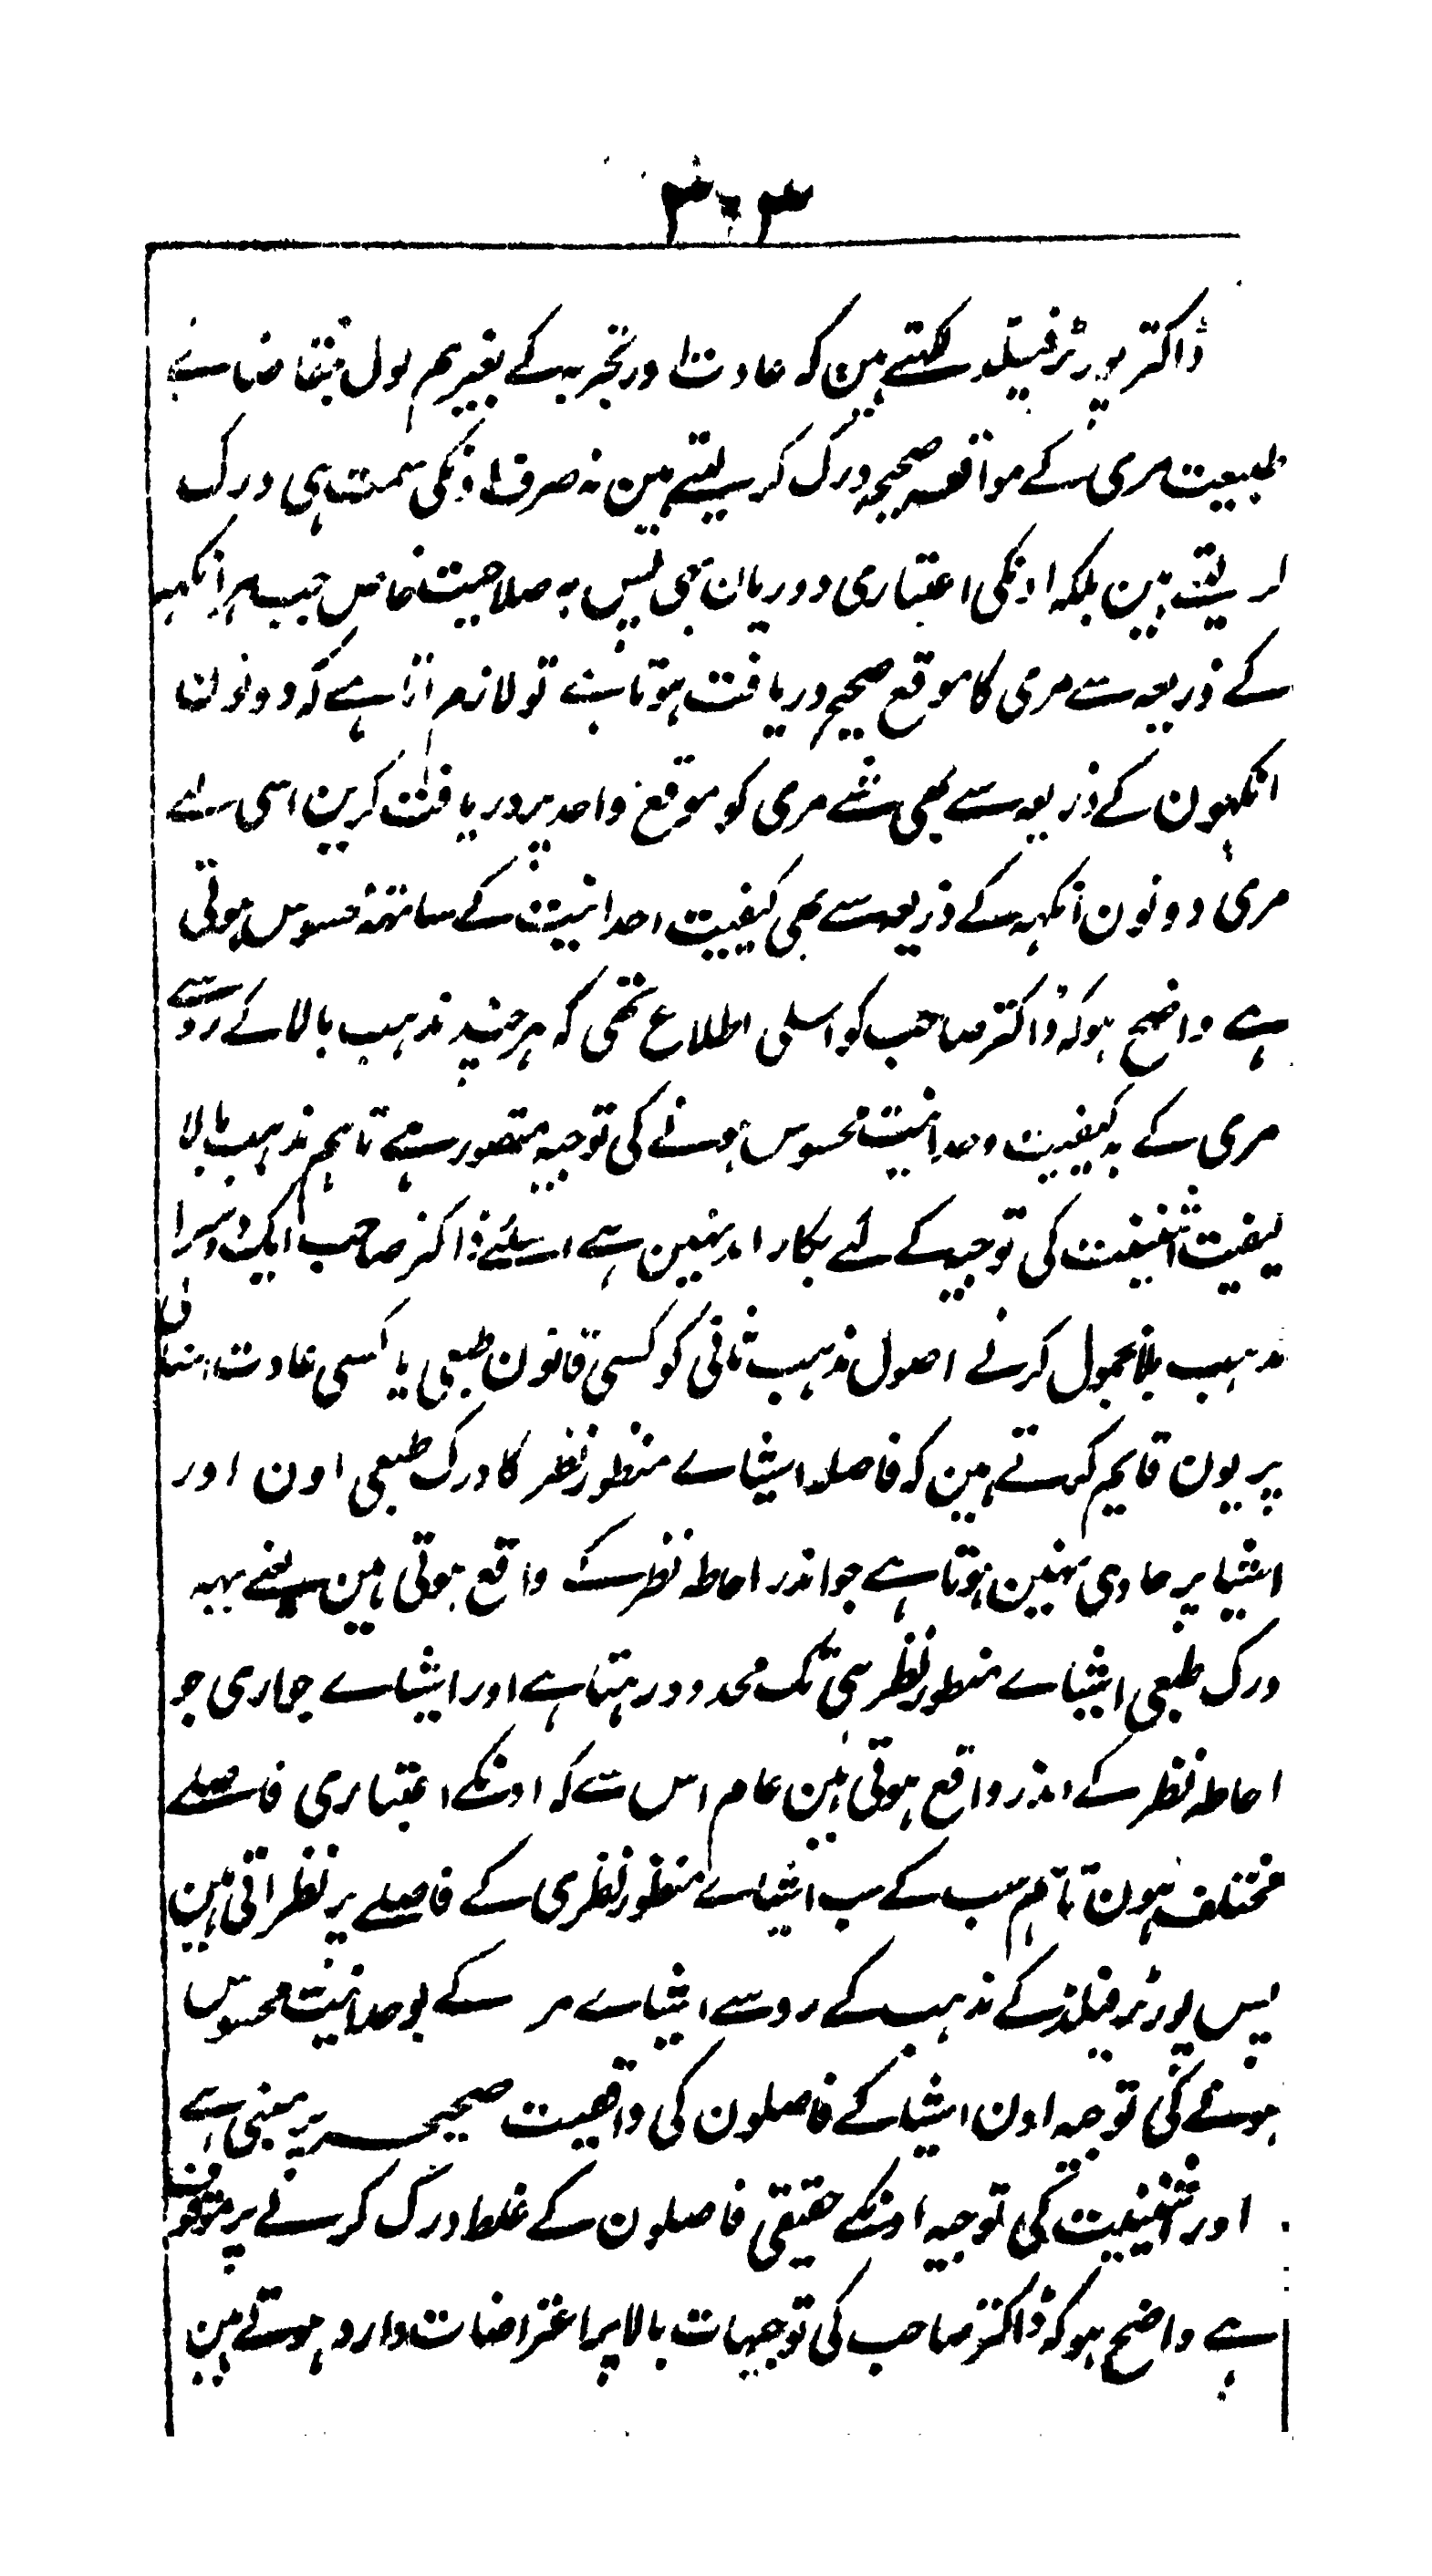 ۳۰۳
ڈاکٹر پورٹرفیلڈ لکھتے ہین کہ عادت اور تجربہ کے بغیر ہم لوگ بتقاضاے
طبیعت مری کے مواقع صحیحہ درک کر لیتے ہین نہ صرف اونکی سمت ہی درک
کر لیتے ہین بلکہ اونکی اعتباری دوریان بھی پس بہ صلاحیت خاص جب ہر انکہہ
کے ذریعہ سے مری کا موقع صحیح دریافت ہوتا ہے تو لازم اتا ہے کہ دونون
انکہون کے ذریعہ سے بھی شے مری کو موقع واحد پر دریافت کرین اسی لے
مری دونون انکہہ کے ذریعہ سے بھی کیفیت احدانیت کے ساتھہ محسوس ہوتی
ہے واضح ہو کہ ڈاکتر صاحب کو اسکی اطلاع تھی کہ ہر چند مذہب بالا کے رو سے
مری کے بہ کیفیت وحدانیت محسوس ہونے کی توجیہ متصور ہے تاہم مذہب بالا
کیفیت اثنینیت کی توجیہ کے لئے بکار امد نہین ہے اسلئے ڈاکٹر صاحب ایک دوسرا
مذہب بلا محمول کرنے اصول مذہب ثانی کو کسی قانون طبعی یا کسی عادت انسانی
پر یون قایم کرتے ہین کہ فاصلہ اشیاے منظور نظر کا درک طبعی اون اور
اشیا پر حاوی نہین ہوتا ہے جو اندر احاطہ نظر کے واقع ہوتی ہین یعنے یہہ
درک طبعی اشیاے منظور نظر ہی تک محدود رہتا ہے اور اشیاے جواری جو
احاطہ نظر کے اندر واقع ہوتی ہین عام اس سے کہ اونکے اعتباری فاصلے
مختلف ہون تاہم سب کے سب اشیاے منظور نظری کے فاصلے پر نظر اتی ہین
پس پورٹرفیلڈ کے مذہب کے رو سے اشیاے مر کے بوحدانیت محسوس
ہونے کی توجیہ اون اشیا کے فاصلون کی واقعیت صحیحہ پر مبنی ہے
اور اثنینیت کی توجیہ اونکے حقیقی فاصلون کے غلط درک کرنے پر موقوف
ہے واضح ہو کہ ڈاکٹر صاحب کی توجیہات بالا پر اعتراضات وارد ہوتے ہین